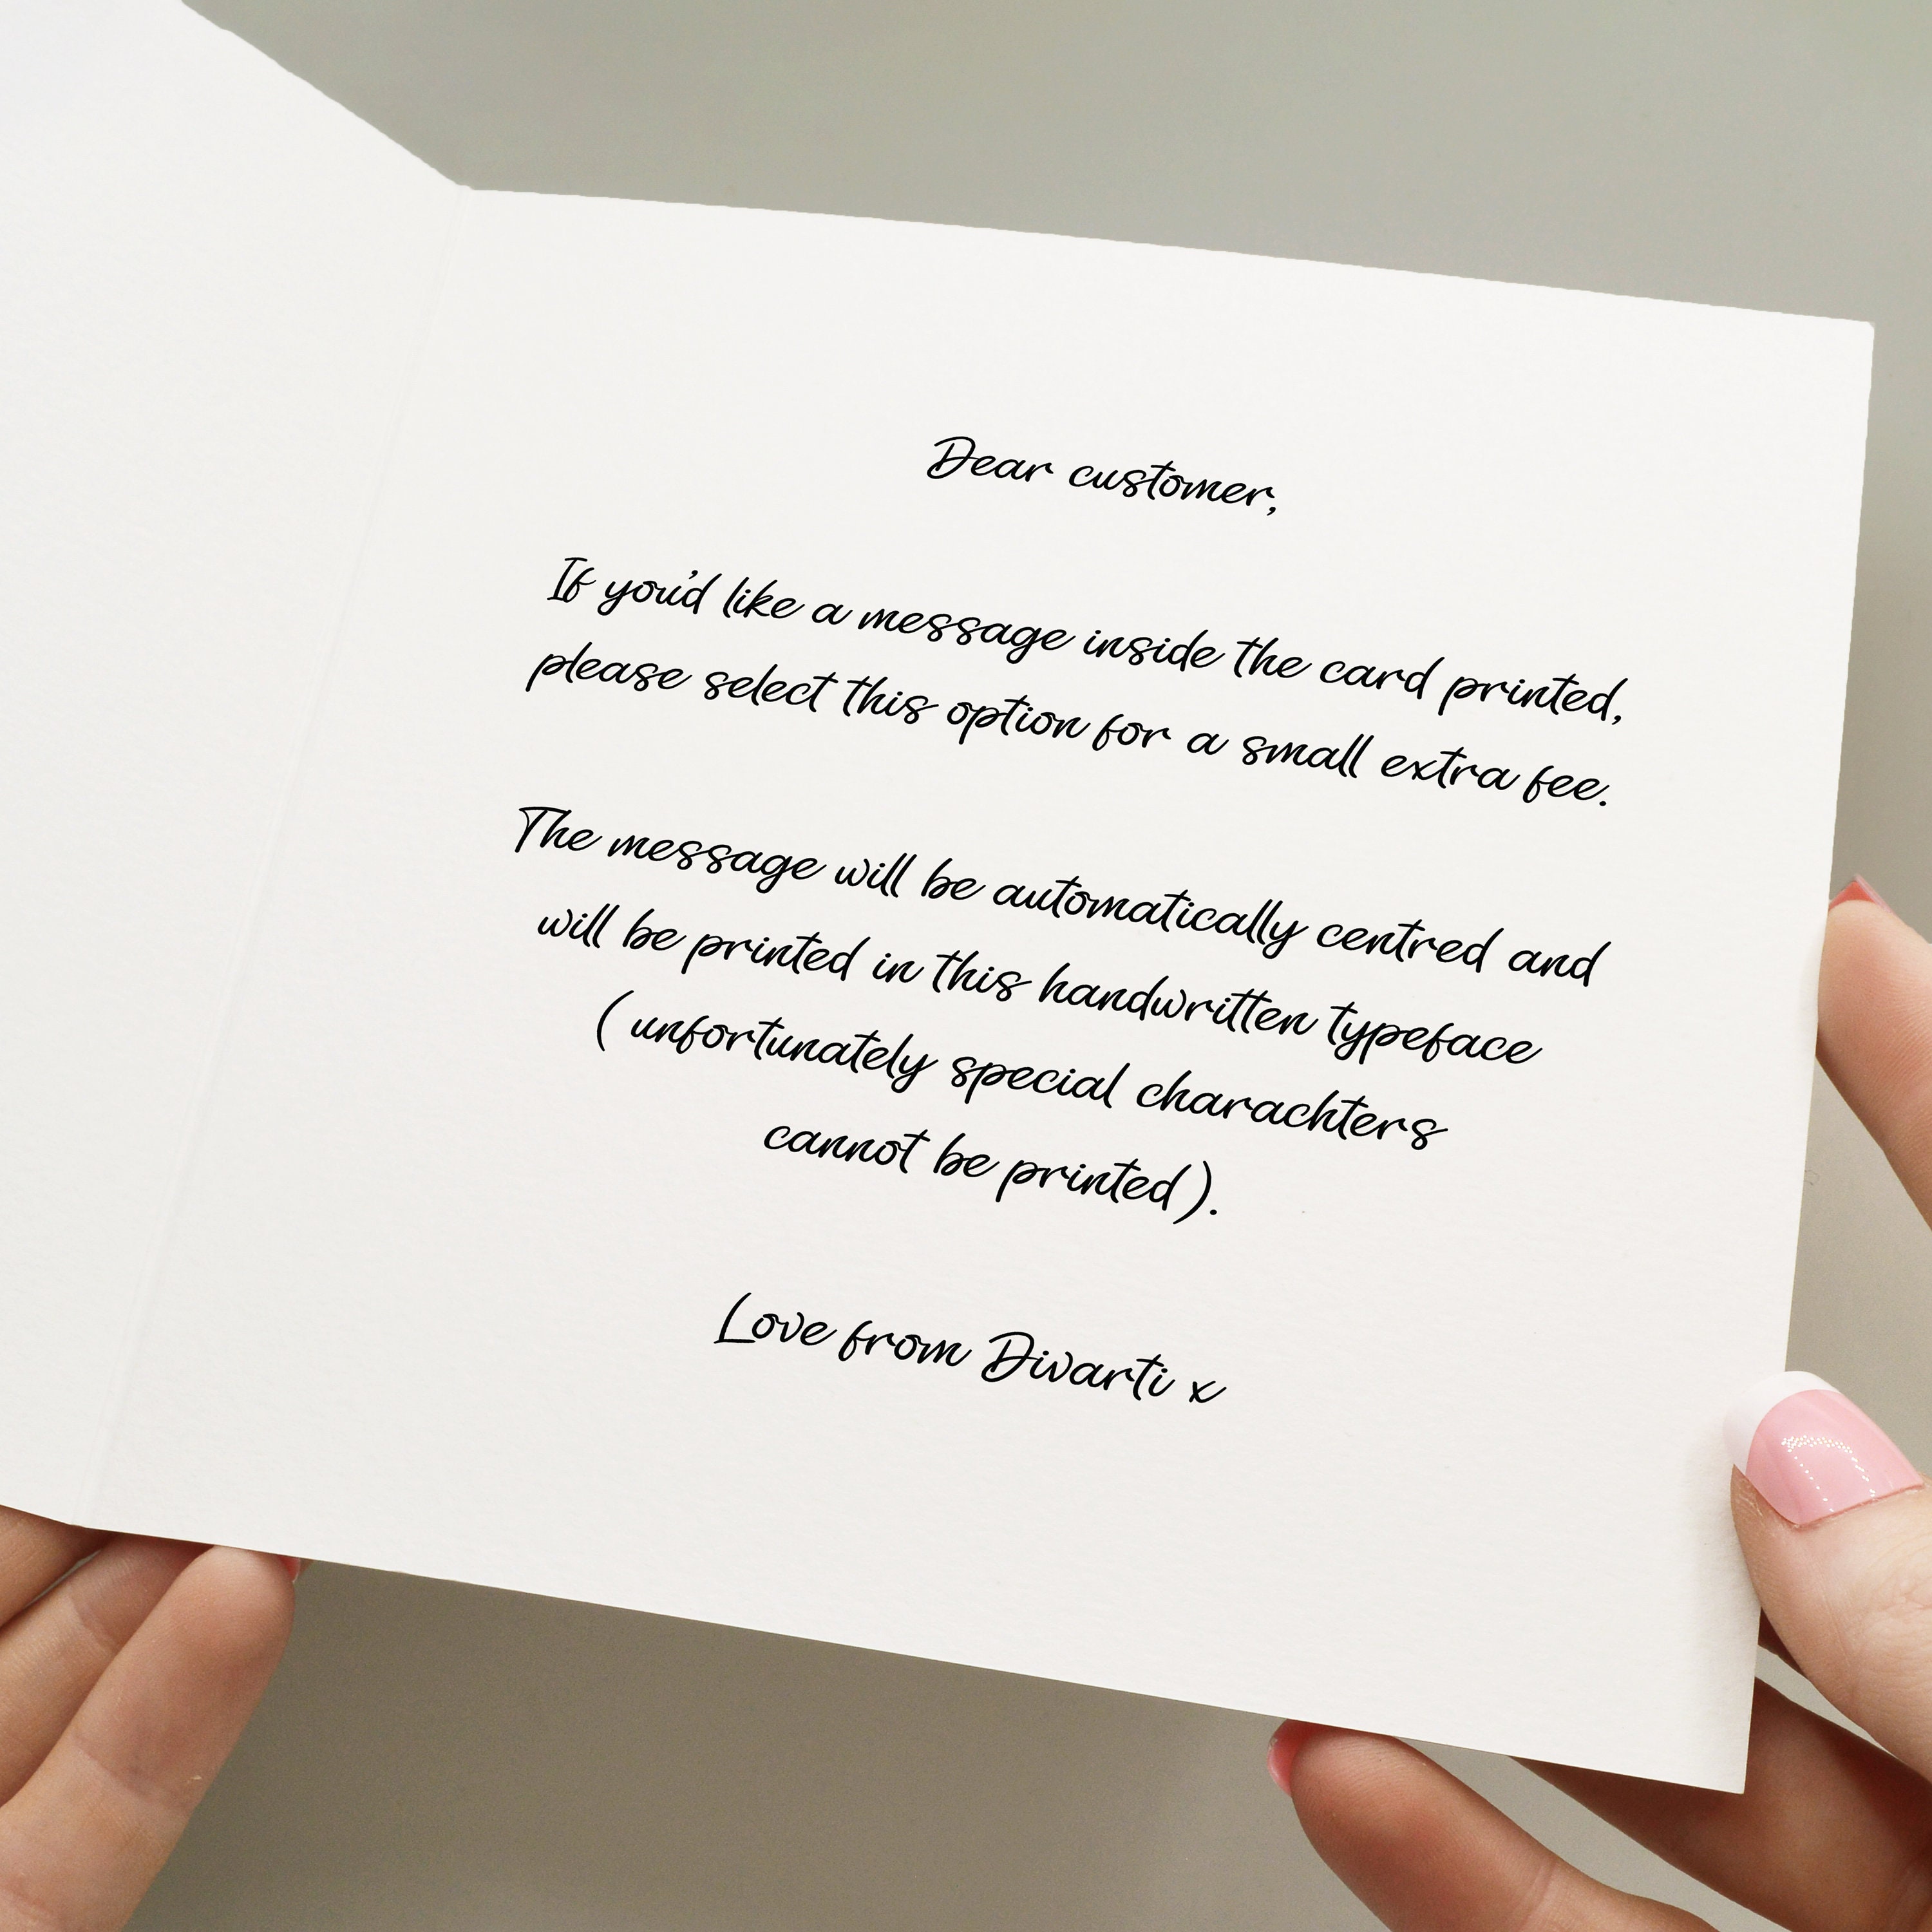 Dear customer,
If you'd like a message inside the card printed,
please select this option for a small extra fee.
The message will be automatically centred and
will be printed in this handwritten typeface
( unfortunately special charachters
cannot be printed).
Love from Divarti x